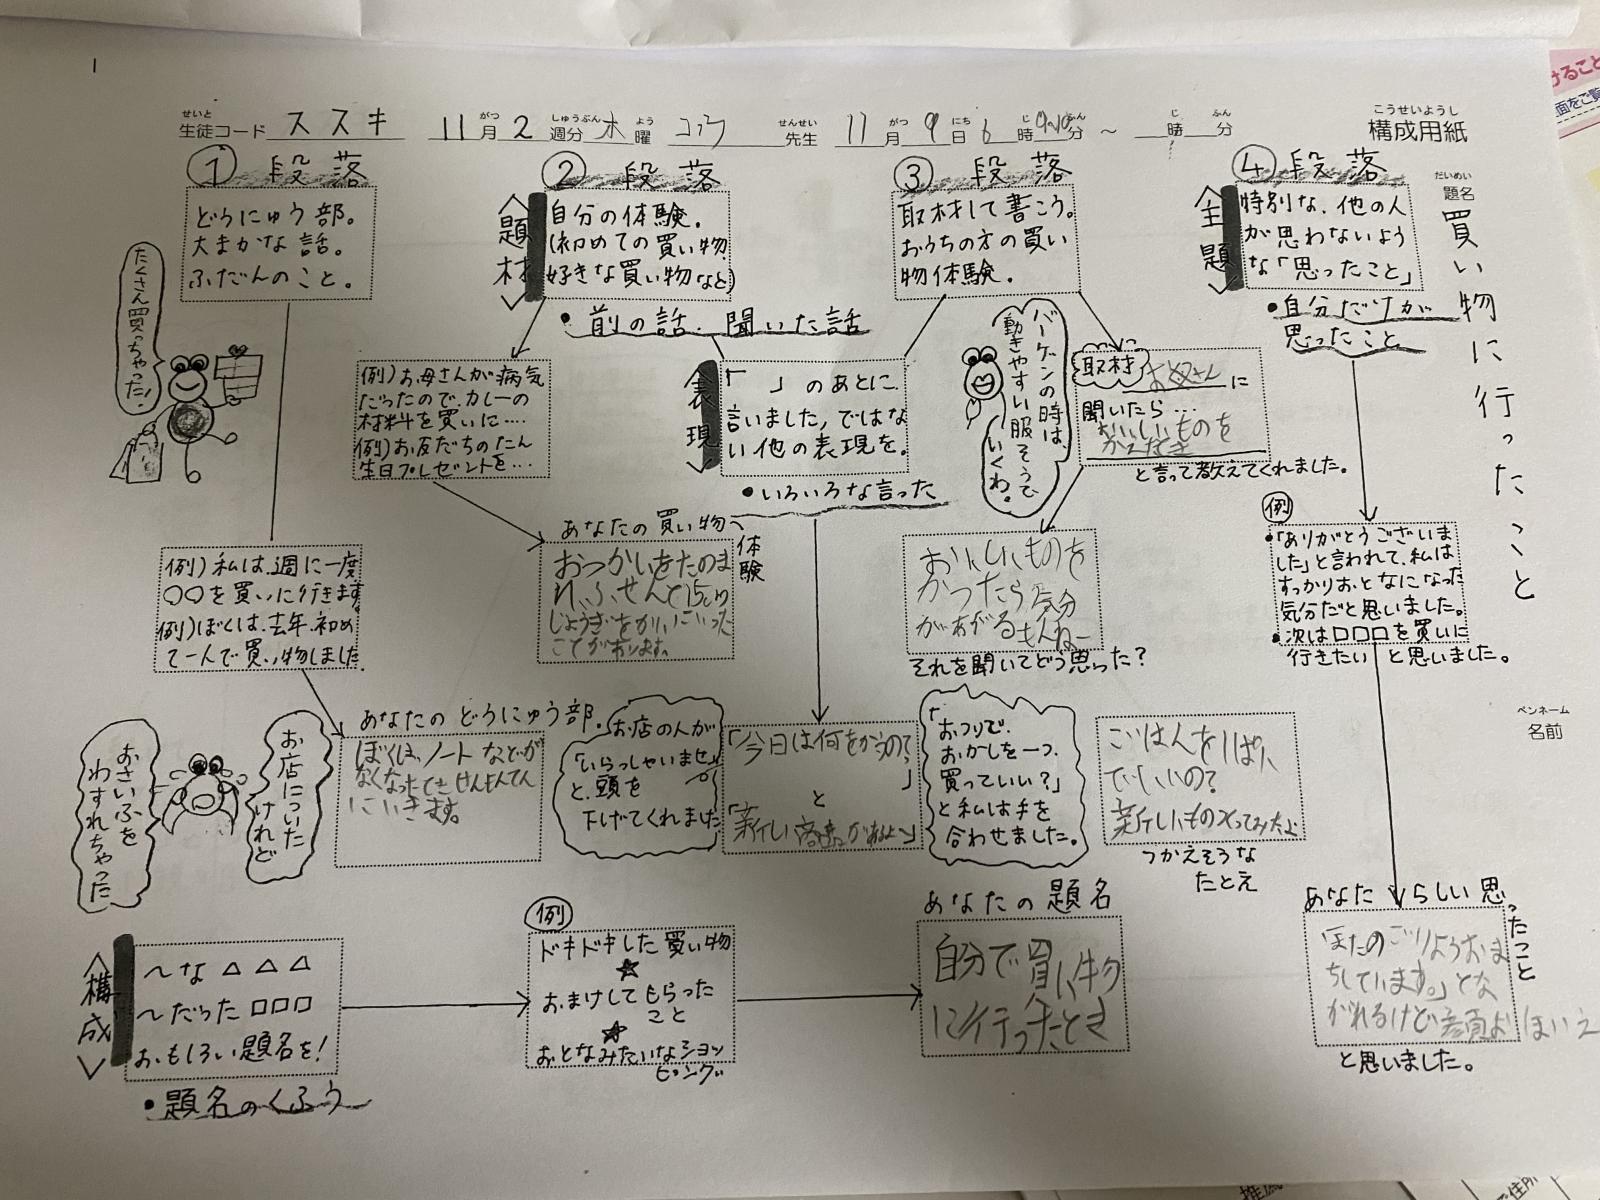 1
せいと
生徒コード ススキ 11 がつ 月 2 しゅうぶん 週分 木 よう 曜 コウ せんせい 先生 11 がつ 月 9 にち 日 6 じ 時 ふん 分 ～ じ 時 ふん 分
こうせいようし
構成用紙
だいめい
題名
買い物に行ったこと
ペンネーム
名前
① 段落
どうにゅう部。
大まかな話。
ふだんのこと。
たくさん買っちゃった！
例）私は、週に一度
〇〇を買いに行きます。
例）ぼくは、去年、初め
て一人で買い物しました。
あなたのどうにゅう部。
ぼくは、ノートなどが
なくなったときせんもんてん
にいきます。
お店についた
けれど
おさいふを
わすれちゃった
② 段落
＜題材＞
自分の体験。
(初めての買い物、
好きな買い物など)
・前の話、聞いた話
例）お母さんが病気
だったので、カレーの
材料を買いに…
例）お友だちのたん
生日プレゼントを…
あなたの買い物
体験
おつかいをたのま
れ、ふせんと15cm
じょうぎをかいにいった
ことがあります。
＜表現＞
「　」のあとに、
言いました、ではな
い他の表現を。
・いろいろな言った
お店の人が
「いらっしゃいませ」
と、頭を
下げてくれました
「今日は何をかうの?
」
と
「新しい商品があるよ〜」
「おつりで、
おかしを一つ、
買っていい?」
と私は手を
合わせました。
③ 段落
取材して書こう。
おうちの方の買い
物体験。
バーゲンの時は、
動きやすい服そうで
いくわ。
取材
お母さんに
聞いたら…
おいしいものを
と言って教えてくれました。
おいしいものを
かったら気分
があがるもんねー
それを聞いてどう思った?
ごはんをしばり
でいいの?
つかえそうな
たとえ
④ 段落
＜主題＞
特別な、他の人
が思わないよう
な「思ったこと」
・自分だけが
思ったこと
例
・「ありがとうございま
した」と言われて、私は
すっかりおとなになった
気分だと思いました。
・次は□□□を買いに
行きたい と思いました。
あなたらしい思ったこと
「またのごりようおま
ちしています。」とな
がれるけど
と思いました。
＜構成＞
〜な△△△
〜だった□□□
おもしろい題名を!
・題名のくふう
例
ドキドキした買い物
★
おまけしてもらった
こと
★
おとなみたいなショッ
ピング
あなたの題名
自分で買い物
に行ったとき